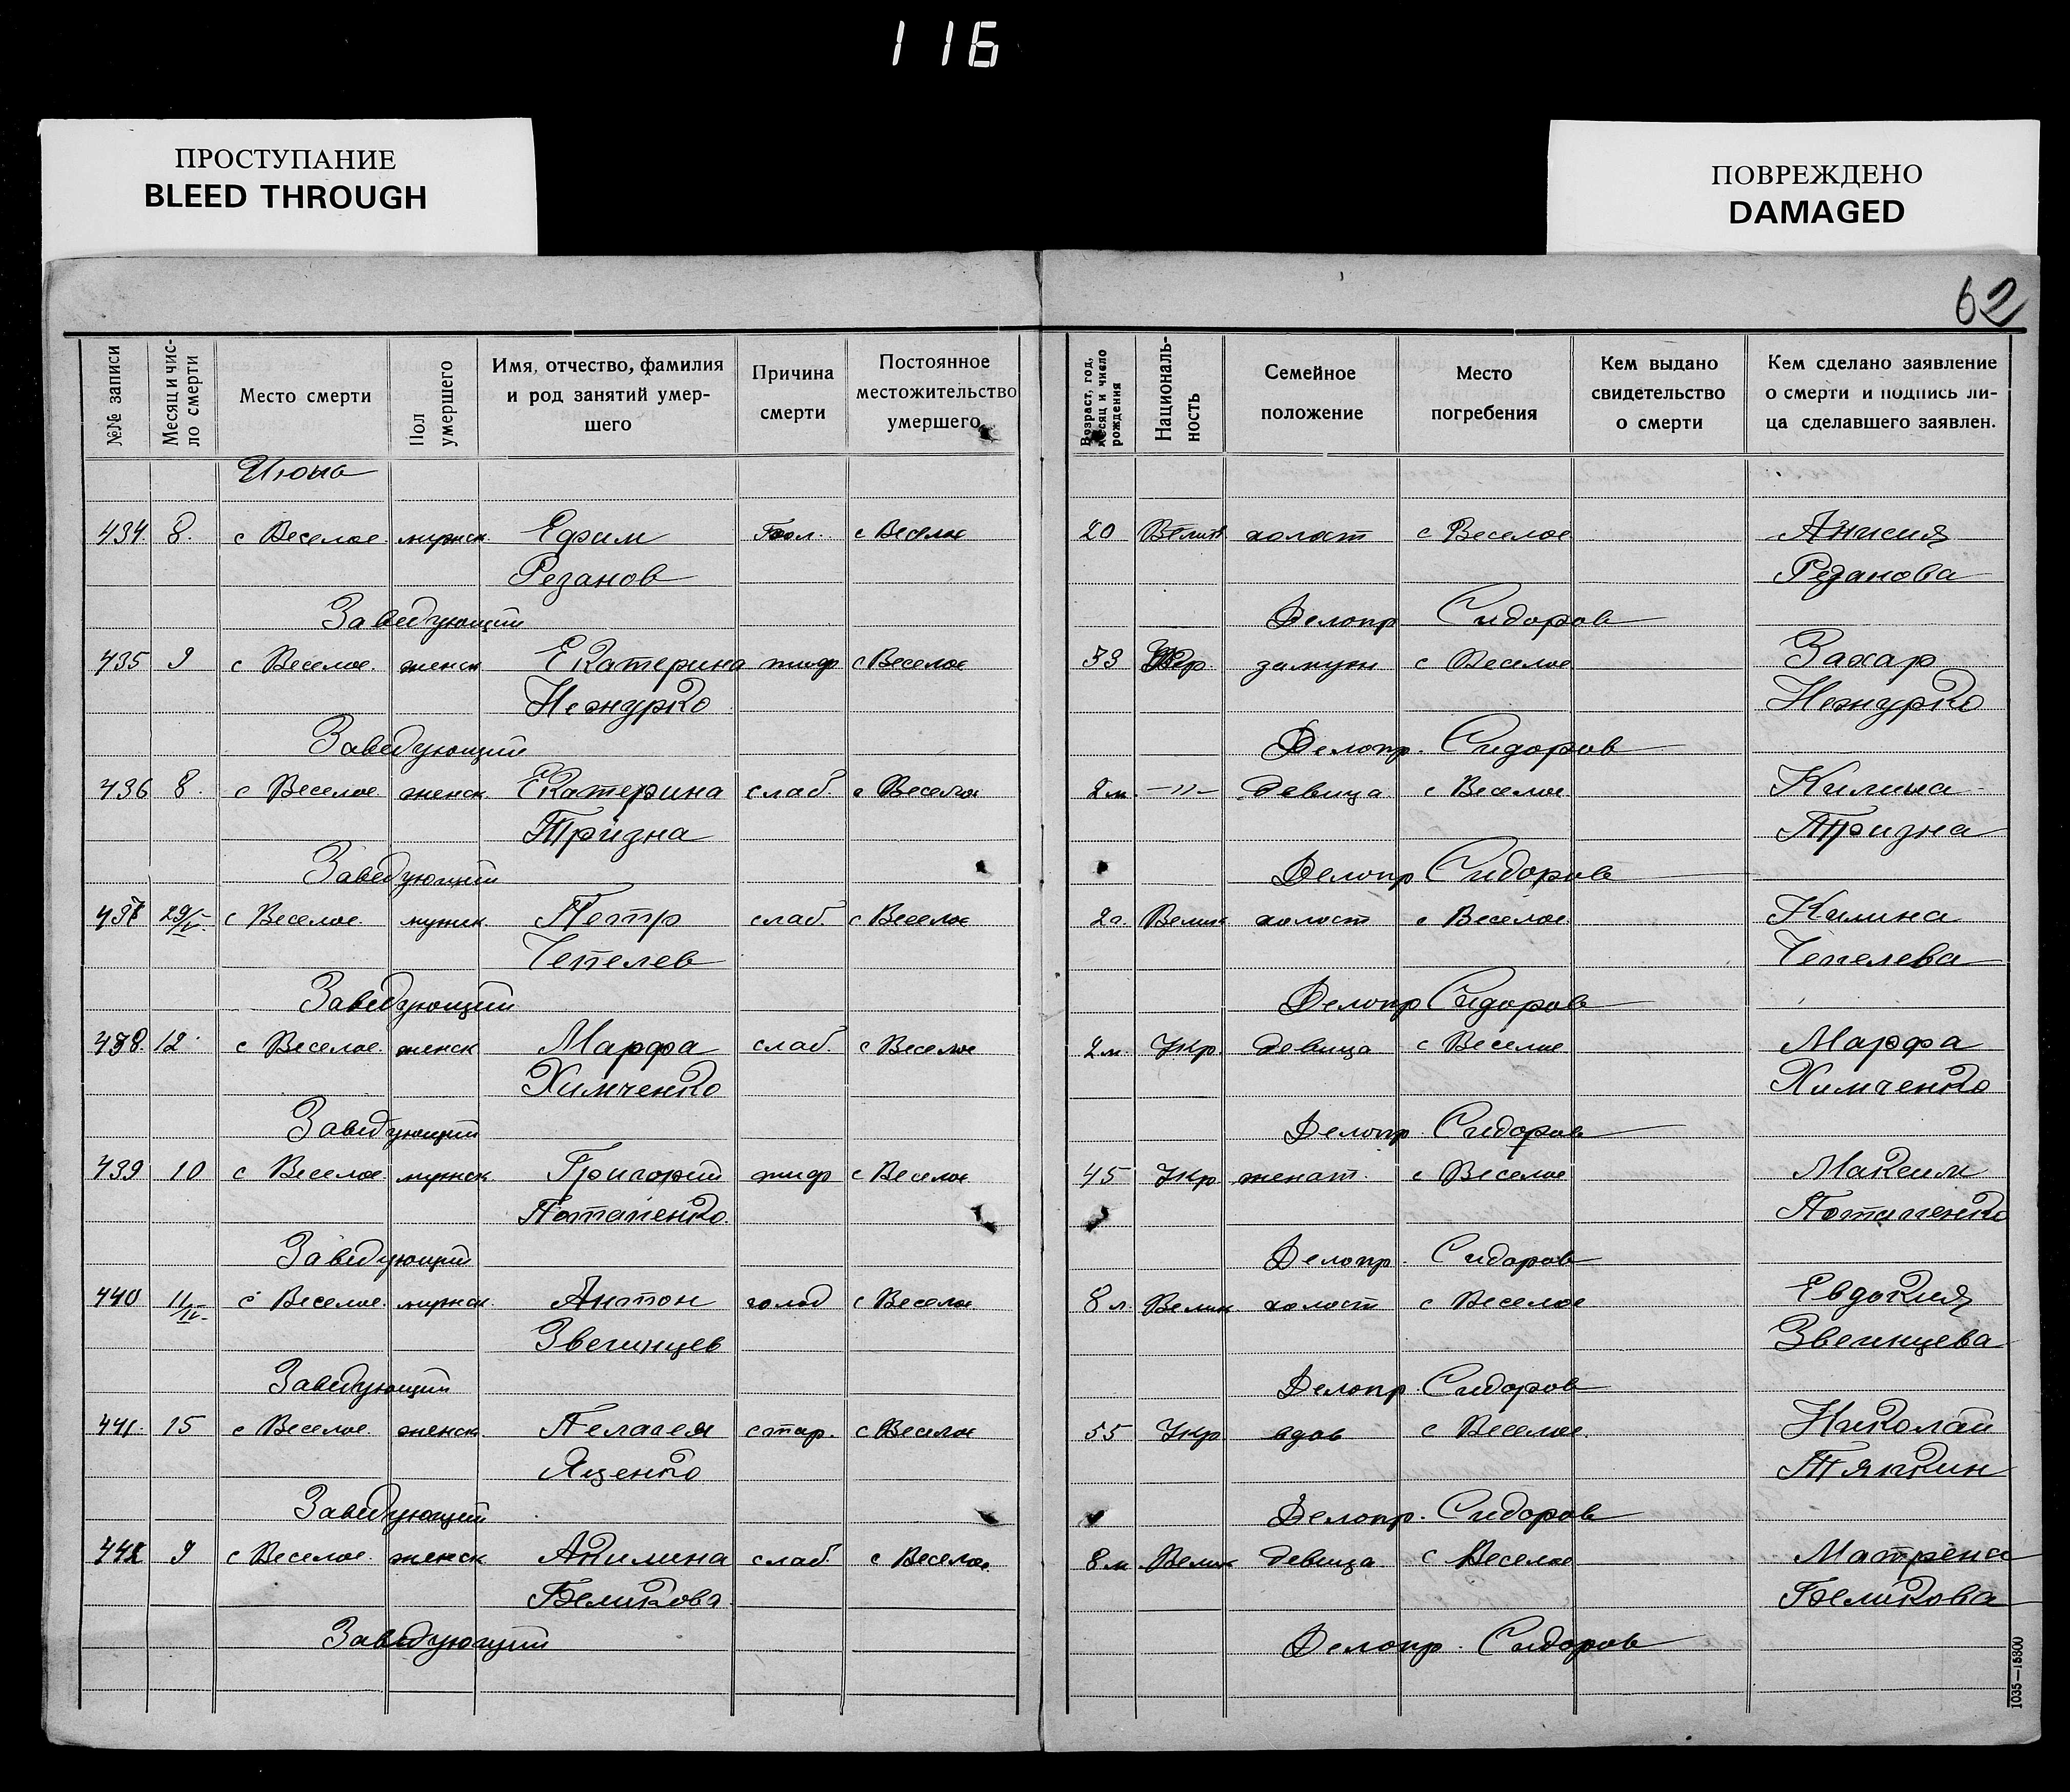 116
ПРОСТУПАНИЕ
BLEED THROUGH
ПОВРЕЖДЕНО
DAMAGED
62
№№ записи
Месяц и чис-
ло смерти
Место смерти
Пол
умершего
Имя, отчество, фамилия
и род занятий умер-
шего
Причина
смерти
Постоянное
местожительство
умершего
Возраст, год,
месяц и число
рождения
Националь-
ность
Семейное
положение
Место
погребения
Кем выдано
свидетельство
о смерти
Кем сделано заявление
о смерти и подпись ли-
ца сделавшего заявлен.
Июнь
434. 8. с Веселое мужск. Ефим с Веселое 20 холост с Веселое Анисия
Резанов Резанова
Заведующий Делопр Сидоров
435 9 с Веселое. женск Екатерина тиф с Веселое 33 замуж с Веселое Захар
Нежурко Нежурко
Заведующий Делопр. Сидоров
436 8. с Веселое женск. Екатерина слаб. с Веселое 2 м. —〃— девица с Веселое Килина
Тризна Тризна
Заведующий Делопр Сидоров
437 29/IV с Веселое. мужск. Петр слаб. с Веселое 2 г. Велик холост с Веселое Килина
Чепелев Чепелева
Заведующий Делопр Сидоров
438. 12 с Веселое женск Марфа слаб. с Веселое 2 м. Укр. девица с Веселое Марфа
Химченко Химченко
Заведующий Делопр. Сидоров
439 10 с Веселое мужск. Григорий тиф с Веселое 45 Укр женат. с Веселое Максим
Потапенко. Потапенко
Заведующий Делопр. Сидоров
440 11/IV с Веселое. мужск. Антон голод с Веселое 8 л. Велик холост с Веселое Евдокия
Звегинцев Звегинцева
Заведующий Делопр. Сидоров
441. 15 с Веселое. женск Пелагея стар. с Веселое 55 Укр вдов с Веселое. Николай
Яценко Тяпкин
Заведующий Делопр. Сидоров
442 9 с Веселое женск Акилина слаб с Веселое 8 м Велик девица с Веселое Матрена
Беликова. Беликова
Заведующий Делопр. Сидоров
1035—15300